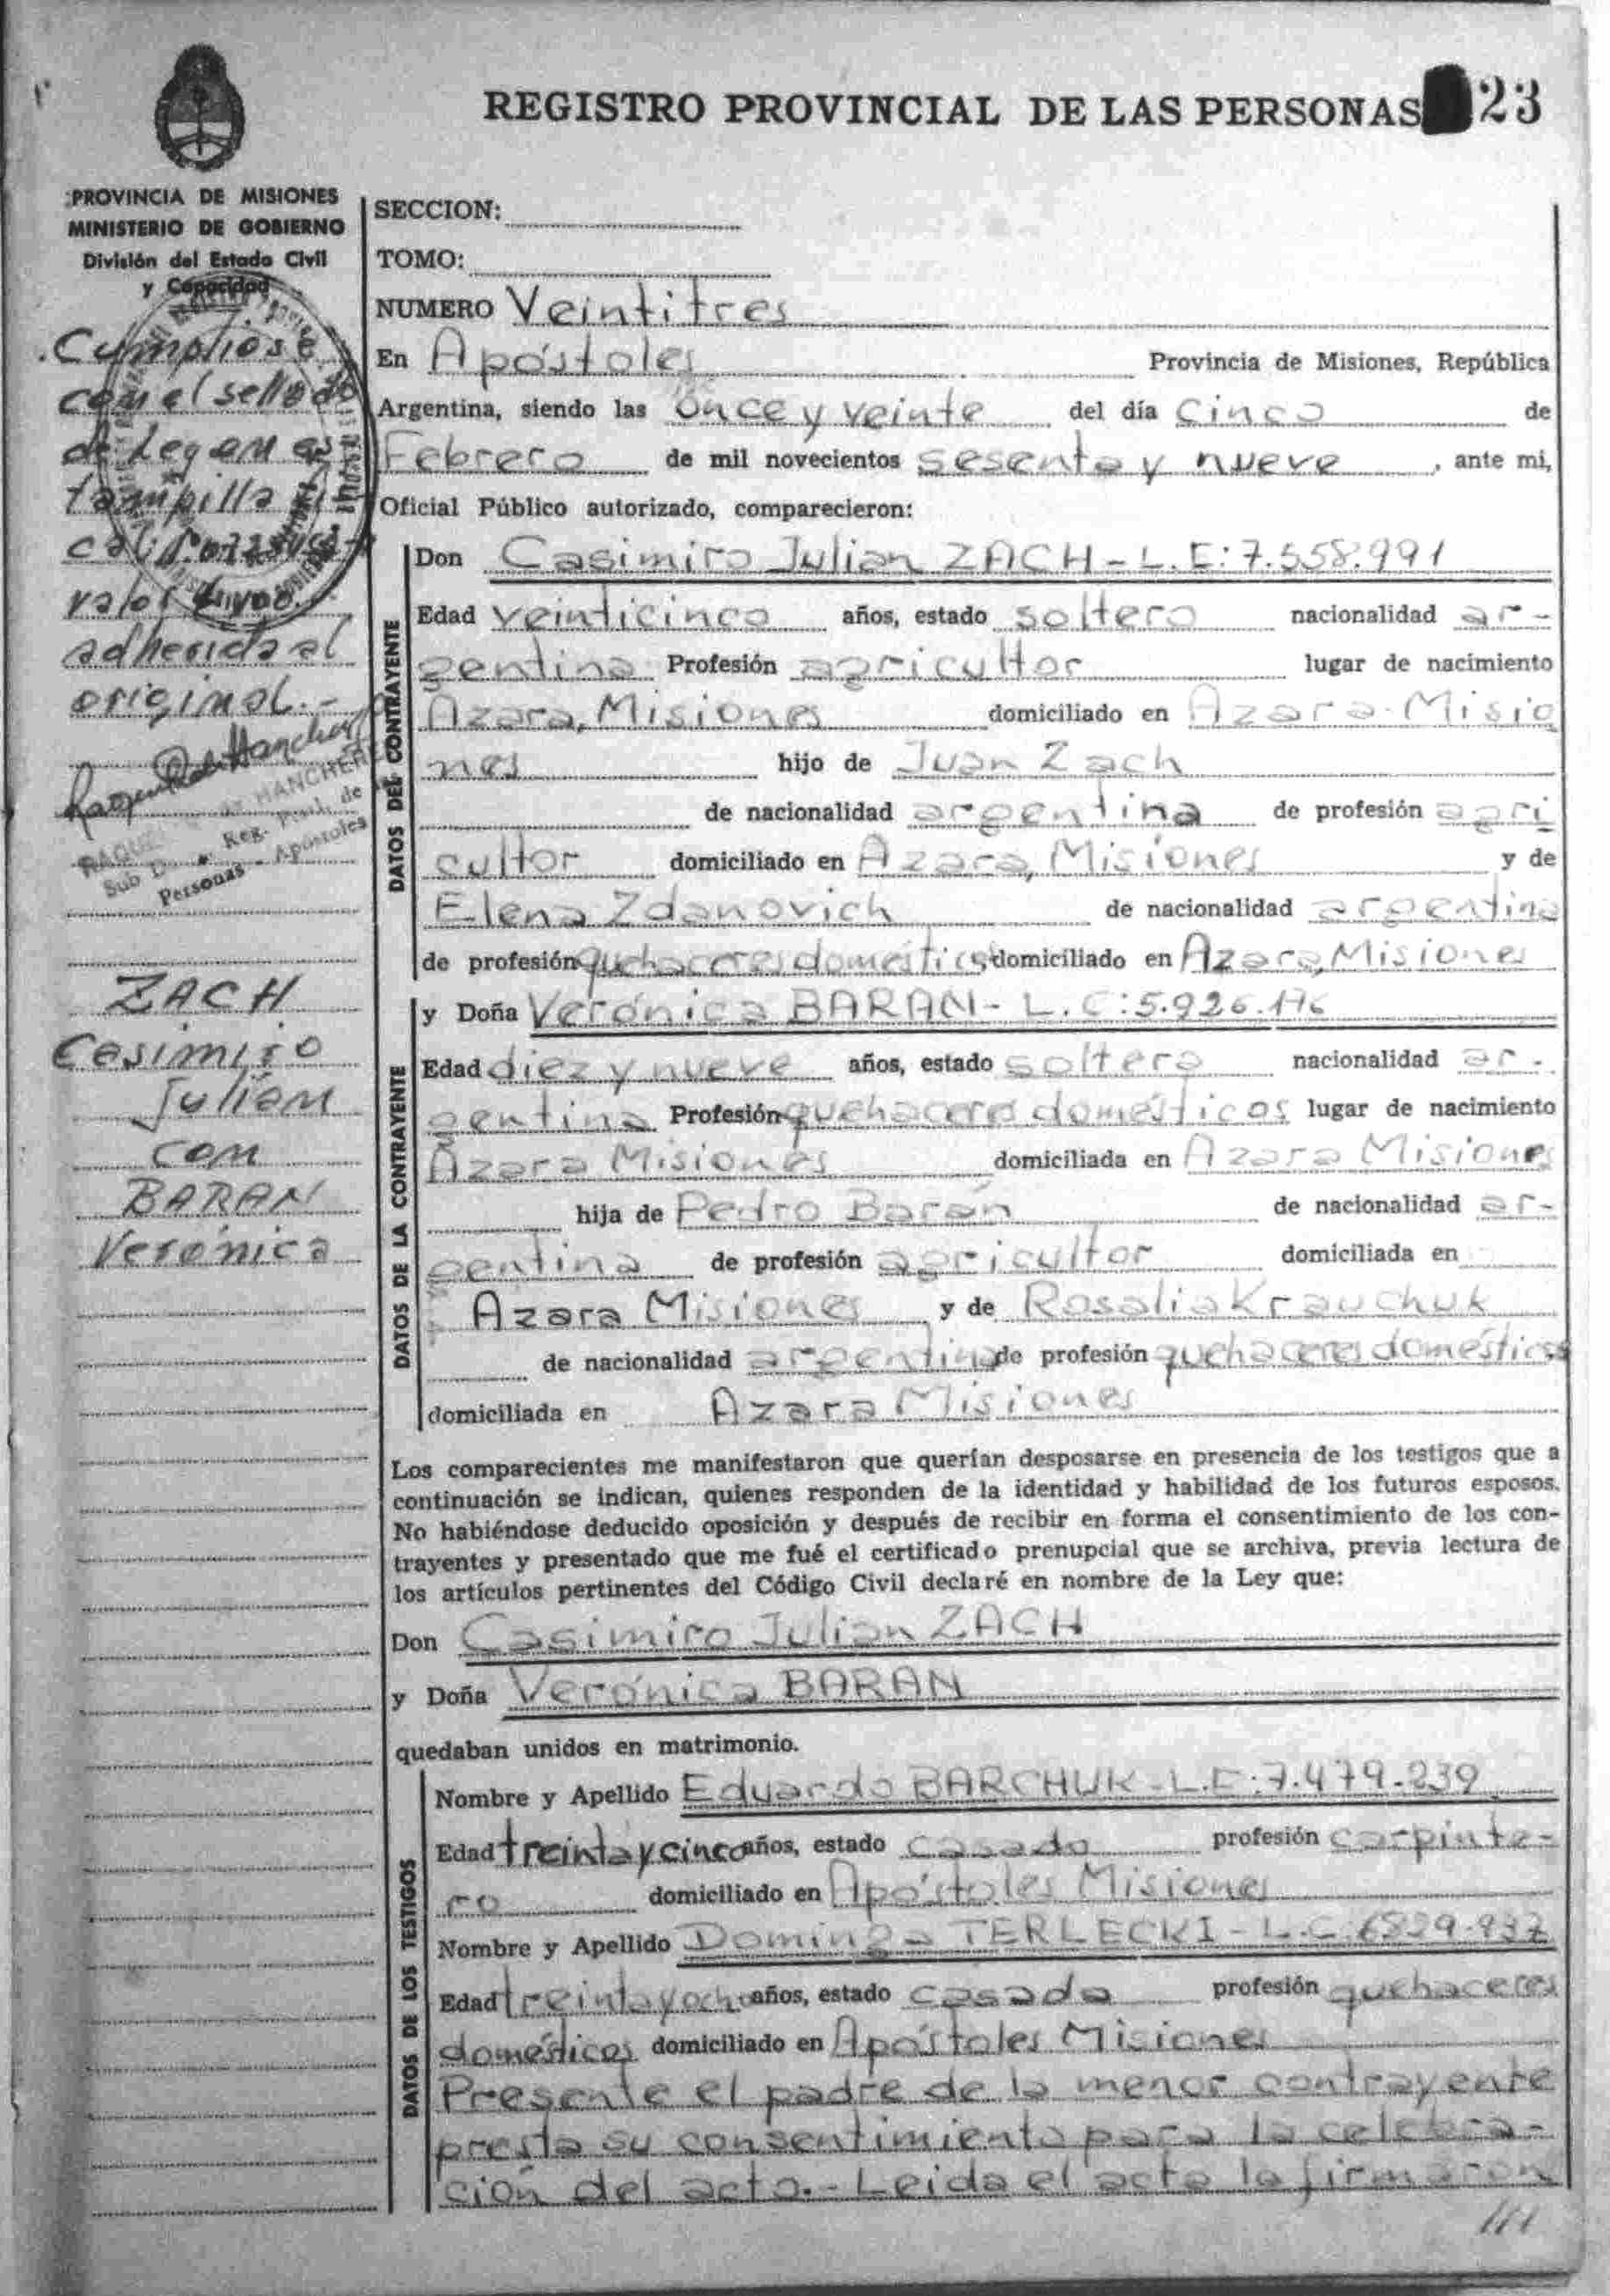 REGISTRO PROVINCIAL DE LAS PERSONAS 23
PROVINCIA DE MISIONES
MINISTERIO DE GOBIERNO
División del Estado Civil
y Capacidad
Cumpliose
con el sellado
de Ley en es
tampilla fis
cal
valor
adherida al
original.-
HANCHERE
RAQUEL
Sub Reg. Prov. de
Personas - Apóstoles
ZACH
Casimiro
Julian
con
BARAN
Verónica
SECCION:
TOMO:
NUMERO Veintitres
En Apóstoles Provincia de Misiones, República
Argentina, siendo las once y veinte del día cinco de
Febrero de mil novecientos sesenta y nueve, ante mi,
Oficial Público autorizado, comparecieron:
DATOS DEL CONTRAYENTE
Don Casimiro Julian ZACH - L.E: 7.558.991
Edad veinticinco años, estado soltero nacionalidad ar-
gentina Profesión agricultor lugar de nacimiento
Azara, Misiones domiciliado en Azara-Misio
nes hijo de Juan Zach
de nacionalidad argentina de profesión agri
cultor domiciliado en Azara, Misiones y de
Elena Zdanovich de nacionalidad argentina
de profesión quehaceres domésticos domiciliado en Azara, Misiones
DATOS DE LA CONTRAYENTE
y Doña Verónica BARAN - L.C: 5.926.176
Edad diez y nueve años, estado soltera nacionalidad ar-
gentina Profesión quehaceres domésticos lugar de nacimiento
Azara Misiones domiciliada en Azara Misiones
hija de Pedro Barán de nacionalidad ar-
gentina de profesión agricultor domiciliada en
Azara Misiones y de Rosalia Krauchuk
de nacionalidad argentina de profesión quehaceres domésticos
domiciliada en Azara Misiones
Los comparecientes me manifestaron que querían desposarse en presencia de los testigos que a
continuación se indican, quienes responden de la identidad y habilidad de los futuros esposos.
No habiéndose deducido oposición y después de recibir en forma el consentimiento de los con-
trayentes y presentado que me fué el certificado prenupcial que se archiva, previa lectura de
los artículos pertinentes del Código Civil declaré en nombre de la Ley que:
Don Casimiro Julian ZACH
y Doña Verónica BARAN
quedaban unidos en matrimonio.
DATOS DE LOS TESTIGOS
Nombre y Apellido Eduardo BARCHUK - L.E: 7.479.239
Edad treinta y cinco años, estado casado profesión carpinte-
ro domiciliado en Apóstoles Misiones
Nombre y Apellido Dominga TERLECKI - L.C. 6829.937
Edad treinta y ocho años, estado casada profesión quehaceres
domésticos domiciliado en Apóstoles Misiones
Presente el padre de la menor contrayente
presta su consentimiento para la celebra-
ción del acto.- Leida el acta la firmaron